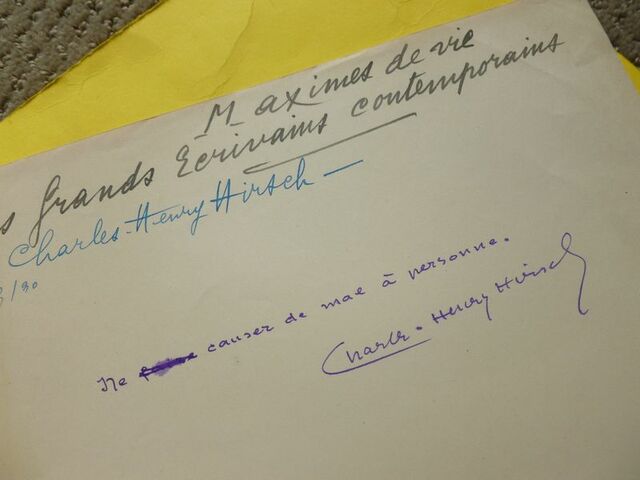 Maximes de vie
s Grands Ecrivains contemporains
Charles-Henry Hirsch —
/30
Ne causer de mal à personne.
Charles-Henry Hirsch